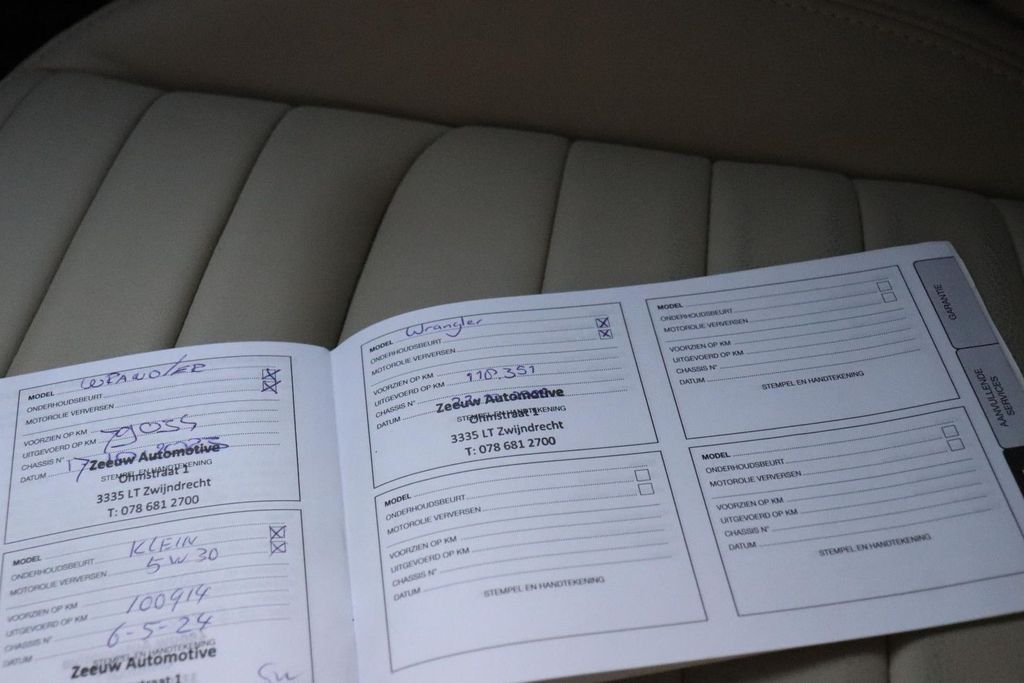 MODEL WRANGLER
ONDERHOUDSBEURT
MOTOROLIE VERVERSEN
VOORZIEN OP KM
UITGEVOERD OP KM 79055
CHASSIS N°
DATUM
Zeeuw Automotive
STEMPEL EN HANDTEKENING
Ohmstraat 1
3335 LT Zwijndrecht
T: 078 681 2700
MODEL KLEIN
ONDERHOUDSBEURT
MOTOROLIE VERVERSEN 5W30
VOORZIEN OP KM
UITGEVOERD OP KM 100914
CHASSIS N°
DATUM 6-5-24
STEMPEL EN HANDTEKENING
Zeeuw Automotive
MODEL Wrangler
ONDERHOUDSBEURT
MOTOROLIE VERVERSEN
VOORZIEN OP KM
UITGEVOERD OP KM 118.351
CHASSIS N°
DATUM
Zeeuw Automotive
STEMPEL EN HANDTEKENING
Ohmstraat 1
3335 LT Zwijndrecht
T: 078 681 2700
MODEL
ONDERHOUDSBEURT
MOTOROLIE VERVERSEN
VOORZIEN OP KM
UITGEVOERD OP KM
CHASSIS N°
DATUM
STEMPEL EN HANDTEKENING
MODEL
ONDERHOUDSBEURT
MOTOROLIE VERVERSEN
VOORZIEN OP KM
UITGEVOERD OP KM
CHASSIS N°
DATUM
STEMPEL EN HANDTEKENING
MODEL
ONDERHOUDSBEURT
MOTOROLIE VERVERSEN
VOORZIEN OP KM
UITGEVOERD OP KM
CHASSIS N°
DATUM
STEMPEL EN HANDTEKENING
GARANTIE
AANVULLENDE
SERVICES